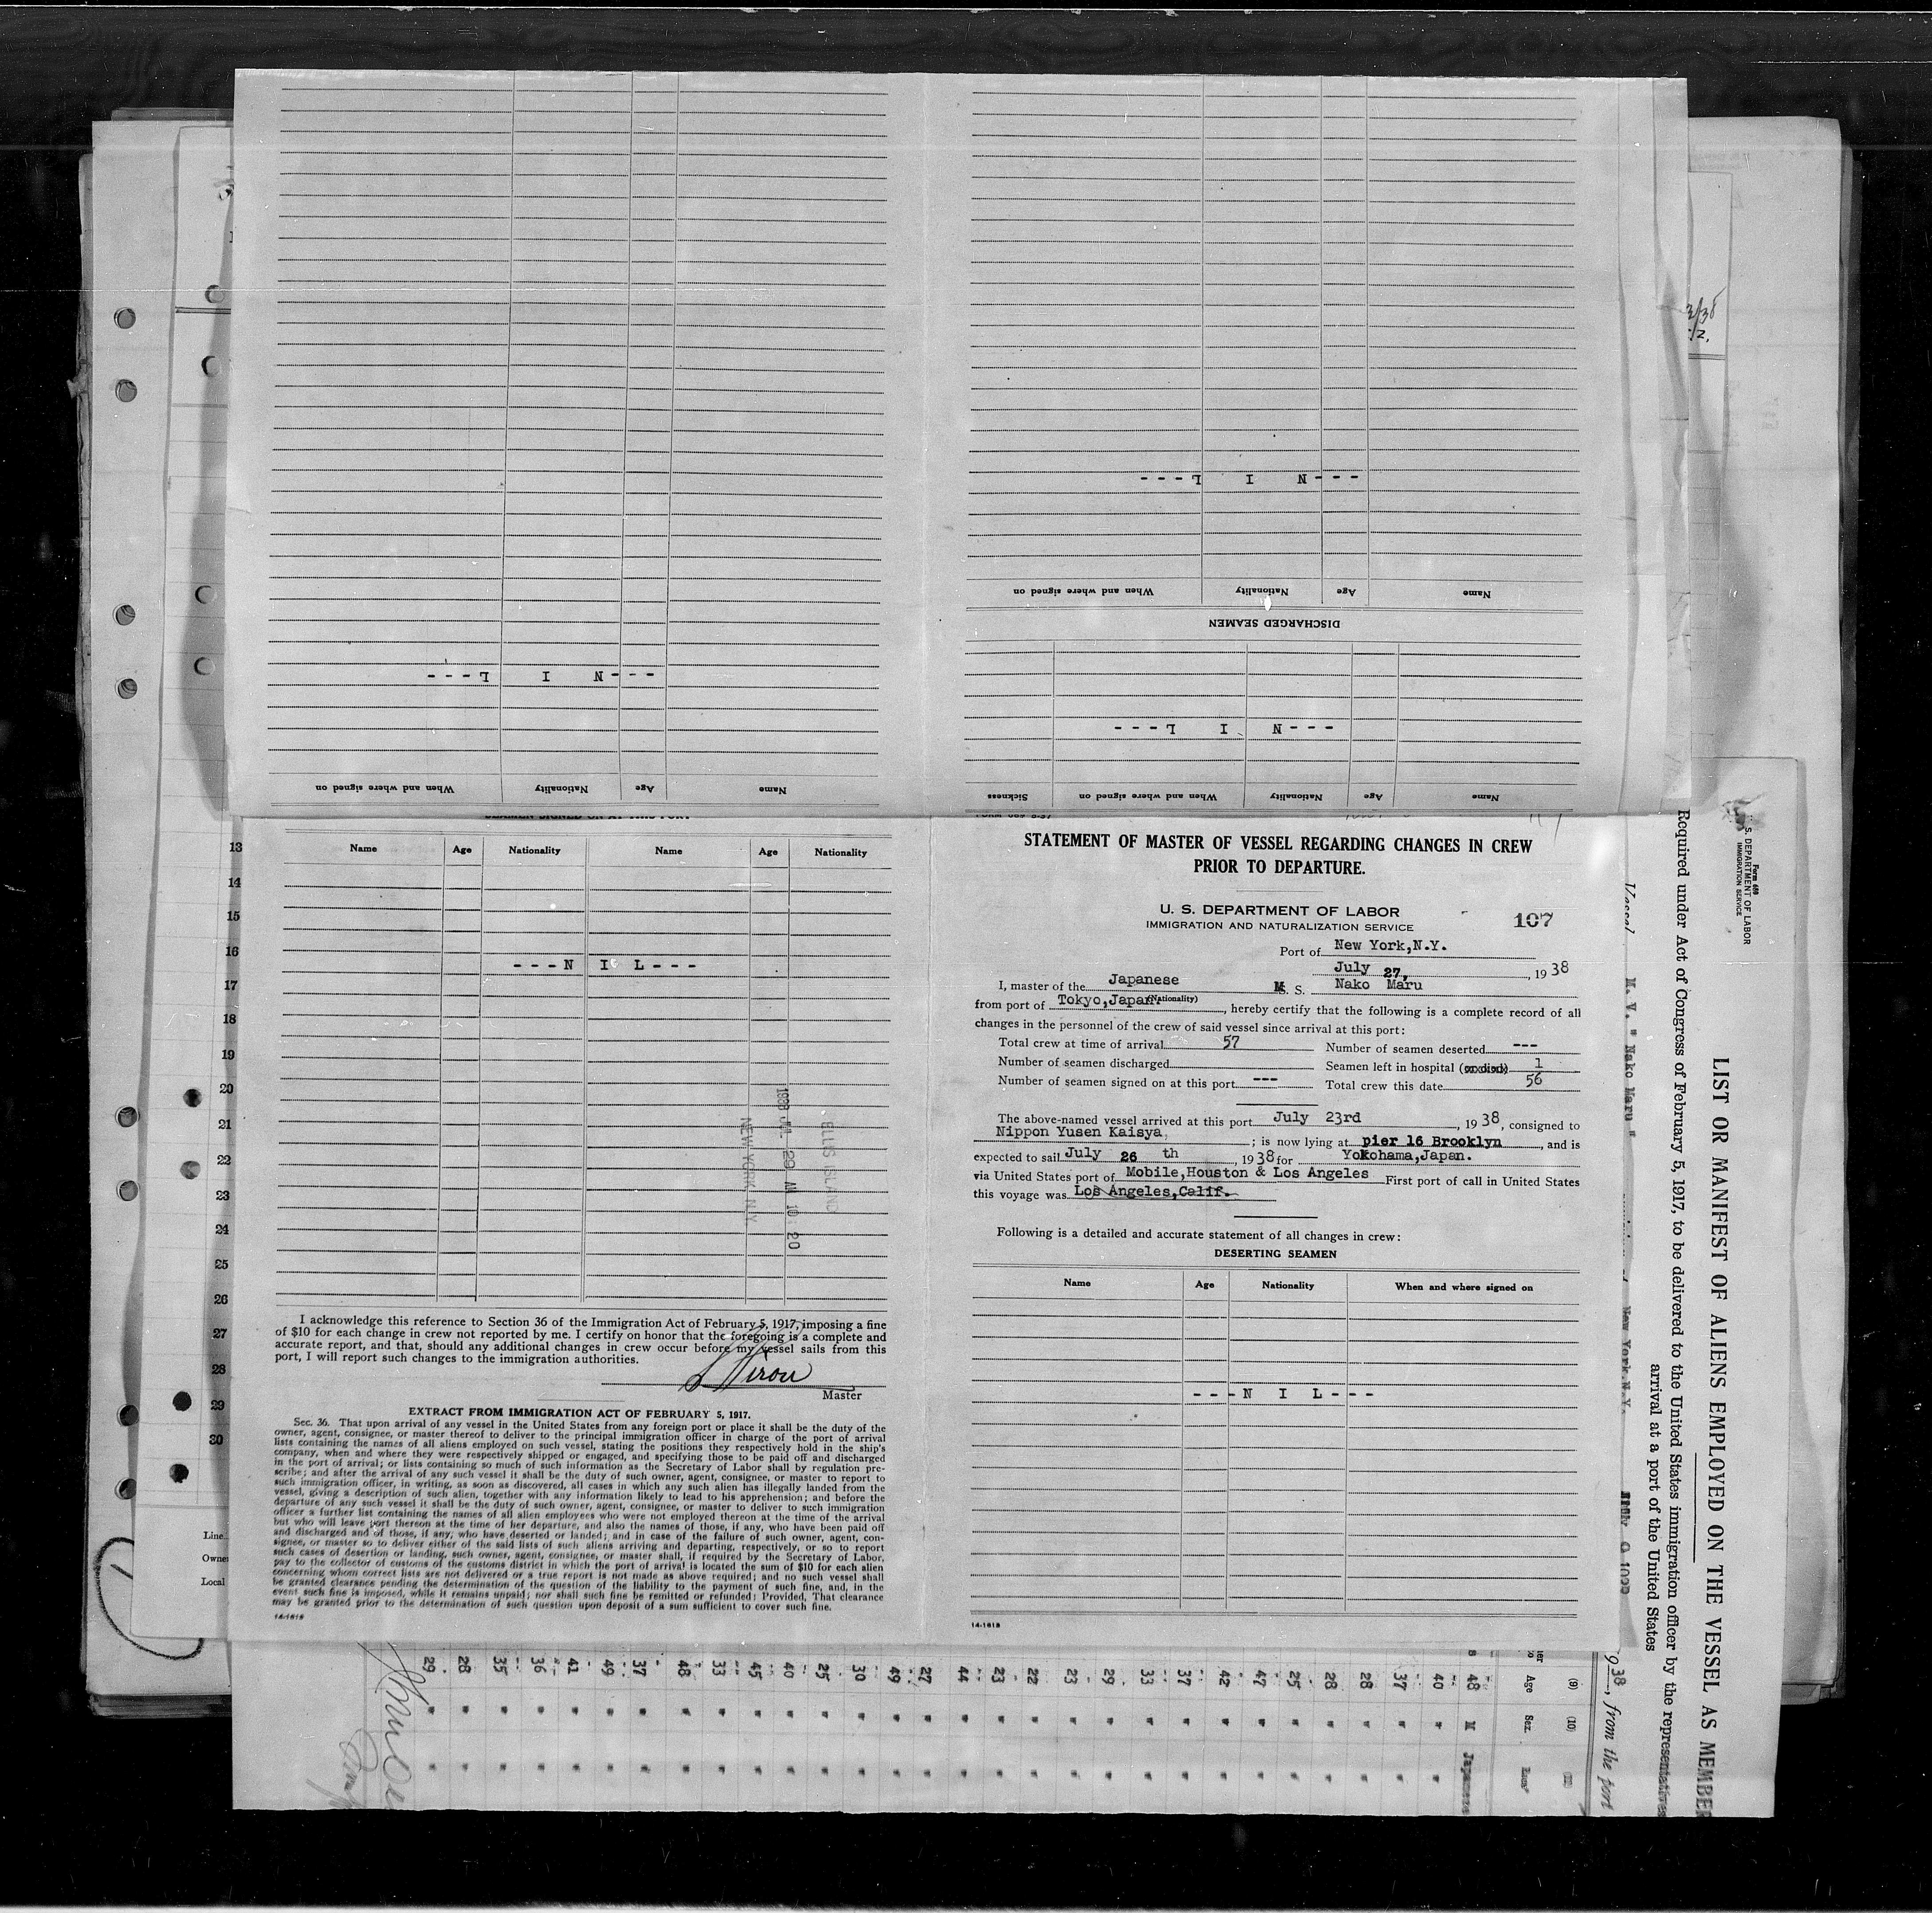 Name Age Nationality When and where signed on
---N I L---
DISCHARGED SEAMEN
Name Age Nationality When and where signed on
---N I L---
Name Age Nationality When and where signed on Sickness
---N I L---
Name Age Nationality Name Age Nationality
---N I L---
ELLIS ISLAND
29 10 20
NEW YORK N.Y.
I acknowledge this reference to Section 36 of the Immigration Act of February 5, 1917, imposing a fine
of $10 for each change in crew not reported by me. I certify on honor that the foregoing is a complete and
accurate report, and that, should any additional changes in crew occur before my vessel sails from this
port, I will report such changes to the immigration authorities.
Master
EXTRACT FROM IMMIGRATION ACT OF FEBRUARY 5, 1917.
Sec. 36. That upon arrival of any vessel in the United States from any foreign port or place it shall be the duty of the
owner, agent, consignee, or master thereof to deliver to the principal immigration officer in charge of the port of arrival
lists containing the names of all aliens employed on such vessel, stating the positions they respectively hold in the ship's
company, when and where they were respectively shipped or engaged, and specifying those to be paid off and discharged
in the port of arrival; or lists containing so much of such information as the Secretary of Labor shall by regulation pre-
scribe; and after the arrival of any such vessel it shall be the duty of such owner, agent, consignee, or master to report to
such immigration officer, in writing, as soon as discovered, all cases in which any such alien has illegally landed from the
vessel, giving a description of such alien, together with any information likely to lead to his apprehension; and before the
departure of any such vessel it shall be the duty of such owner, agent, consignee, or master to deliver to such immigration
officer a further list containing the names of all alien employees who were not employed thereon at the time of the arrival
but who will leave port thereon at the time of her departure, and also the names of those, if any, who have been paid off
and discharged and of those, if any, who have deserted or landed; and in case of the failure of such owner, agent, con-
signee, or master so to deliver either of the said lists of such aliens arriving and departing, respectively, or so to report
such cases of desertion or landing, such owner, agent, consignee, or master shall, if required by the Secretary of Labor,
pay to the collector of customs of the customs district in which the port of arrival is located the sum of $10 for each alien
concerning whom correct lists are not delivered or a true report is not made as above required; and no such vessel shall
be granted clearance pending the determination of the question of the liability to the payment of such fine, and, in the
event such fine is imposed, while it remains unpaid; nor shall such fine be remitted or refunded: Provided, That clearance
may be granted prior to the determination of such question upon deposit of a sum sufficient to cover such fine.
14-1618
STATEMENT OF MASTER OF VESSEL REGARDING CHANGES IN CREW
PRIOR TO DEPARTURE.
U. S. DEPARTMENT OF LABOR
IMMIGRATION AND NATURALIZATION SERVICE
107
Port of New York,N.Y.
July 27, , 1938
I, master of the Japanese M S. S. Nako Maru
(Nationality)
from port of Tokyo,Japan. , hereby certify that the following is a complete record of all
changes in the personnel of the crew of said vessel since arrival at this port:
Total crew at time of arrival 57 Number of seamen deserted ---
Number of seamen discharged Seamen left in hospital (or died) 1
Number of seamen signed on at this port --- Total crew this date 56
The above-named vessel arrived at this port July 23rd , 1938, consigned to
Nippon Yusen Kaisya ; is now lying at pier 16 Brooklyn , and is
expected to sail July 26 th , 1938 for Yokohama,Japan.
via United States port of Mobile,Houston & Los Angeles First port of call in United States
this voyage was Los Angeles,Calif.
Following is a detailed and accurate statement of all changes in crew:
DESERTING SEAMEN
Name Age Nationality When and where signed on
---N I L---
14-1618
13
14
15
16
17
18
19
20
21
22
23
24
25
26
27
28
29
30
Line
Owner
Local
Form 689
S. DEPARTMENT OF LABOR
IMMIGRATION SERVICE
LIST OR MANIFEST OF ALIENS EMPLOYED ON THE VESSEL AS MEMBER
Required under Act of Congress of February 5, 1917, to be delivered to the United States immigration officer by the representatives
arrival at a port of the United States
Vessel M. V. " Nako Maru " New York.N.Y.
38, from the port
(9) (10) (11)
Age Sex Race
48 M Japanese
40 " "
37 " "
28 " "
28 " "
25 " "
47 " "
42 " "
37 " "
33 " "
29 " "
23 " "
22 " "
23 " "
44 " "
27 " "
49 " "
30 " "
25 " "
40 " "
45 " "
33 " "
48 " "
37 " "
49 " "
41 " "
36 " "
35 " "
28 " "
29 " "